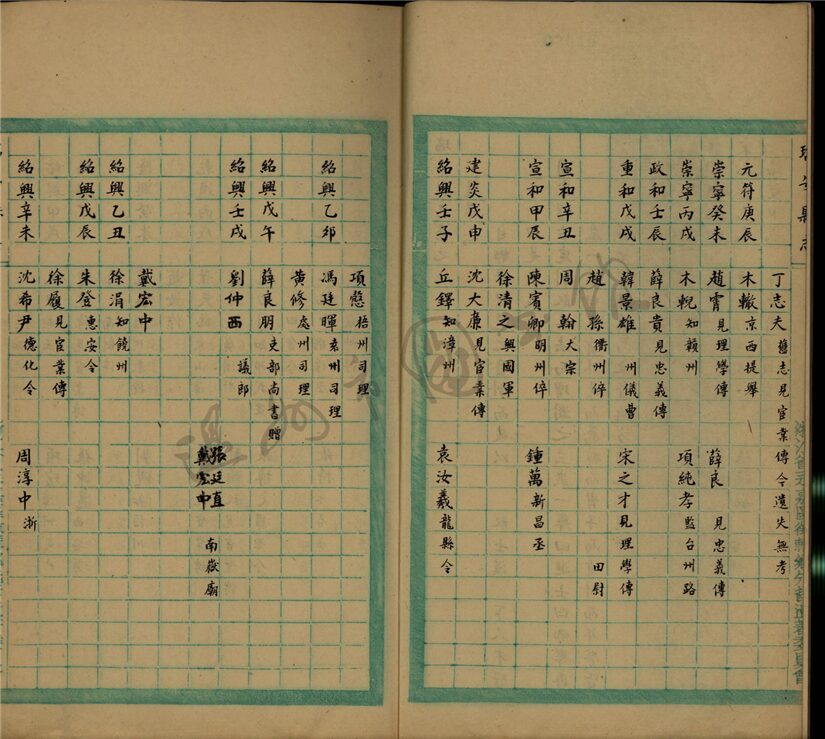 瑞安縣志
丁志夫 舊志見宦業傳今遺失無考
元符庚辰 木轍 京西提舉
崇寧癸未 趙霄 見理學傳 薛良 見忠義傳
崇寧丙戌 木輗 知贛州 項純孝 監台州路
政和壬辰 薛良貴 見忠義傳
重和戊戌 韓景雄 州儀曹 宋之才 見理學傳
趙孫 衢州倅 田尉
宣和辛丑 周翰 大宗
宣和甲辰 陳賓卿 明州倅 鍾萬 新昌丞
徐清之 興國軍
建炎戊申 沈大廉 見宦業傳
紹興壬子 丘鐸 知漳州 袁汝羲 龍縣令
項懋 梧州司理
紹興乙卯 馮廷暉 袁州司理
黄修 處州司理
紹興戊午 薛良朋 吏部尚書贈
紹興壬戌 劉仲西 議郎
張廷直 南嶽廟
戴宏中
戴宏中
紹興乙丑 徐涓 知饒州
紹興戊辰 朱登 惠安令
徐履 見宦業傳
紹興辛未 沈希尹 德化令 周淳中 浙